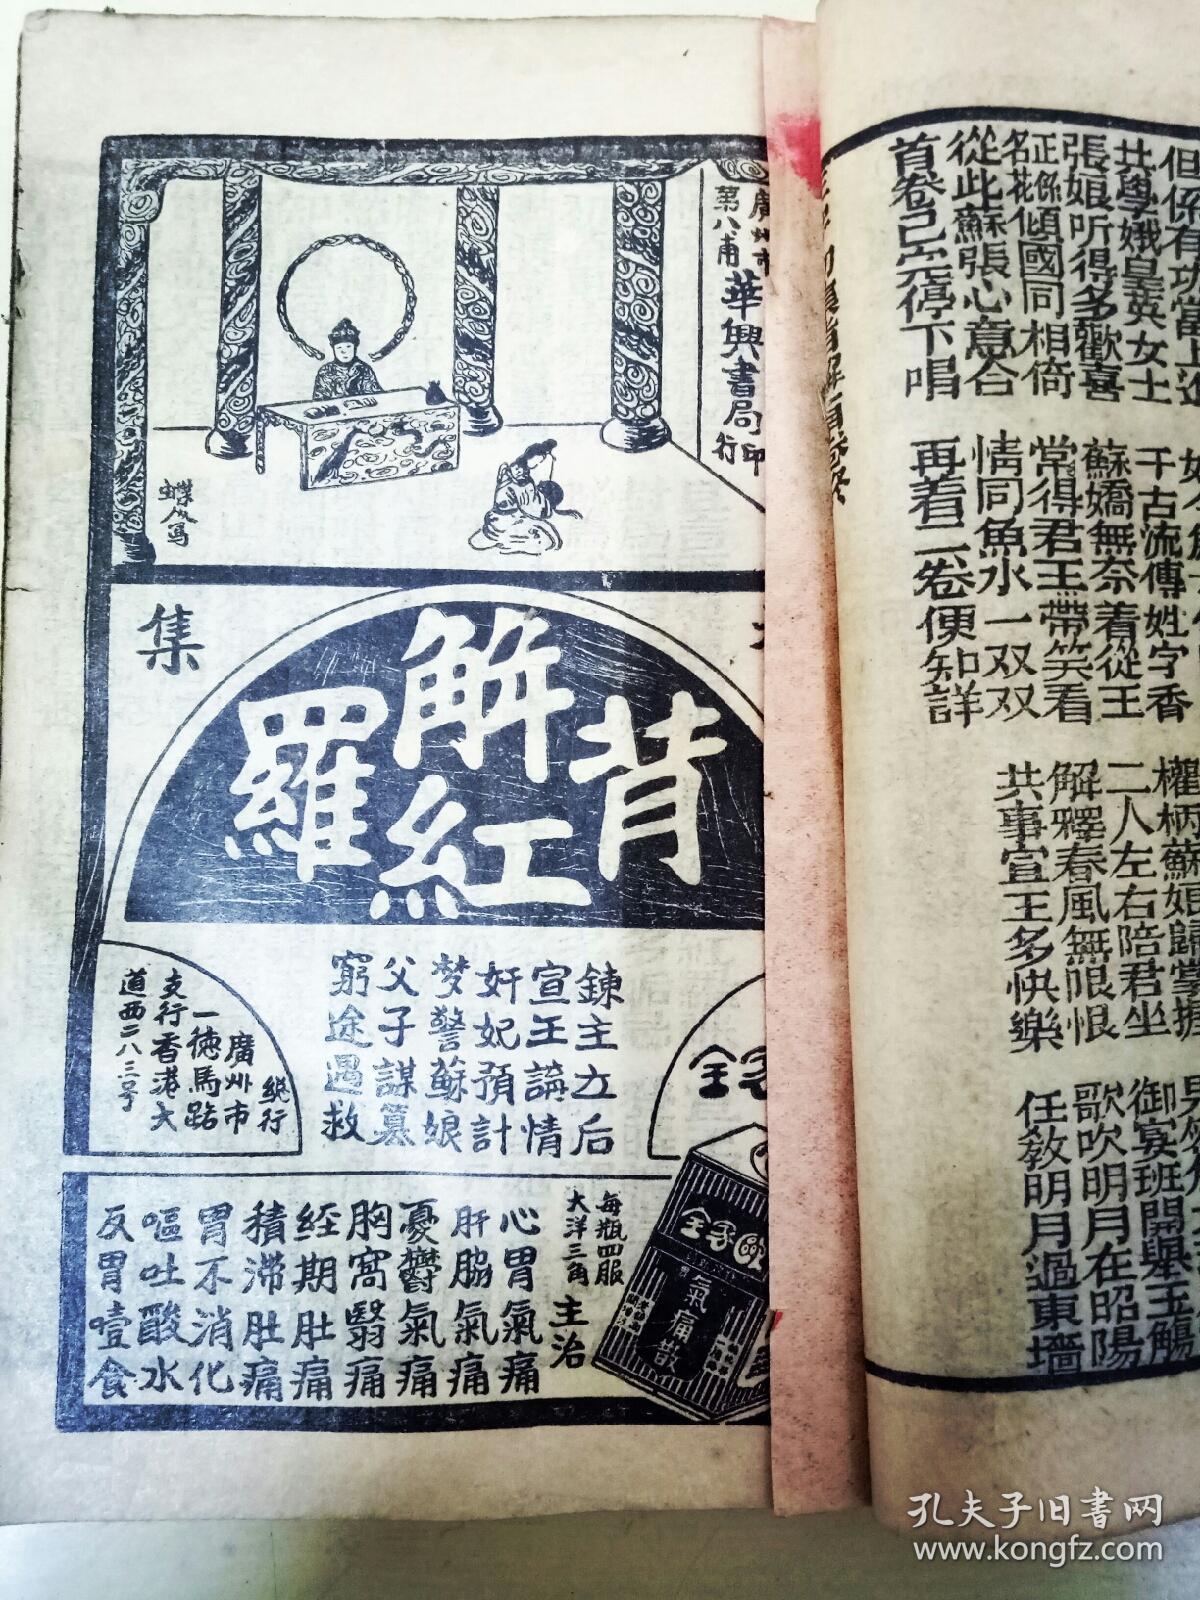 但係有功當上
共學娥皇英女士
千古流傳姓字香
權柄蘇娘歸掌握
張娘听得多歡喜
蘇嬌無奈着從王
二人左右陪君坐
御宴班開舉玉觴
正係
名花傾國同相倚
常得君王帶笑看
解釋春風無限恨
歌吹明月在昭陽
從此蘇張心意合
情同魚水一双双
共事宣王多快樂
任教明月過東墻
首卷已完停下唱
再着二卷便知詳
廣州市
第八甫
華興書局印行
蝶人寫
集
背解紅羅
諫主立后
宣王論情
奸妃預計
梦警蘇娘
父子謀篡
窮途遇救
總行
廣州市
一德馬路
支行香港大
道西二八三号
每瓶四服
大洋三角
主治
心胃氣痛
肝腸氣痛
憂鬱氣痛
胸窩翳痛
經期肚痛
積滯肚痛
胃不消化
嘔吐酸水
反胃噎食
氣痛散
孔夫子旧书网
www.kongfz.com